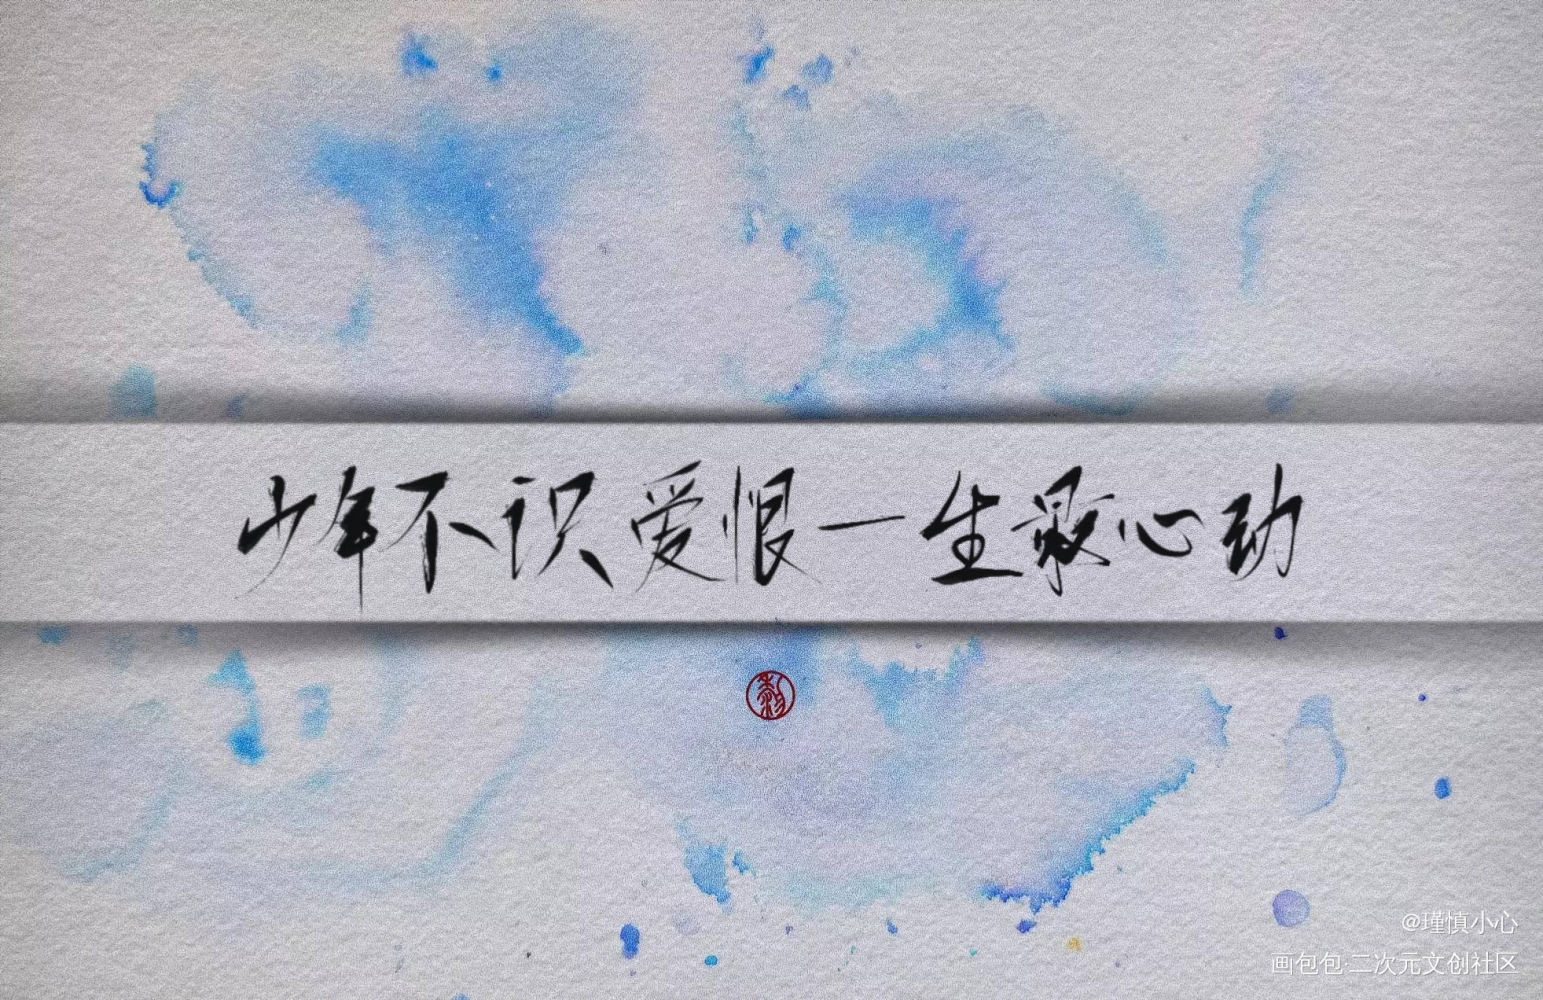 少年不识爱恨一生最心动
@瑾慎小心
画包包·二次元文创社区